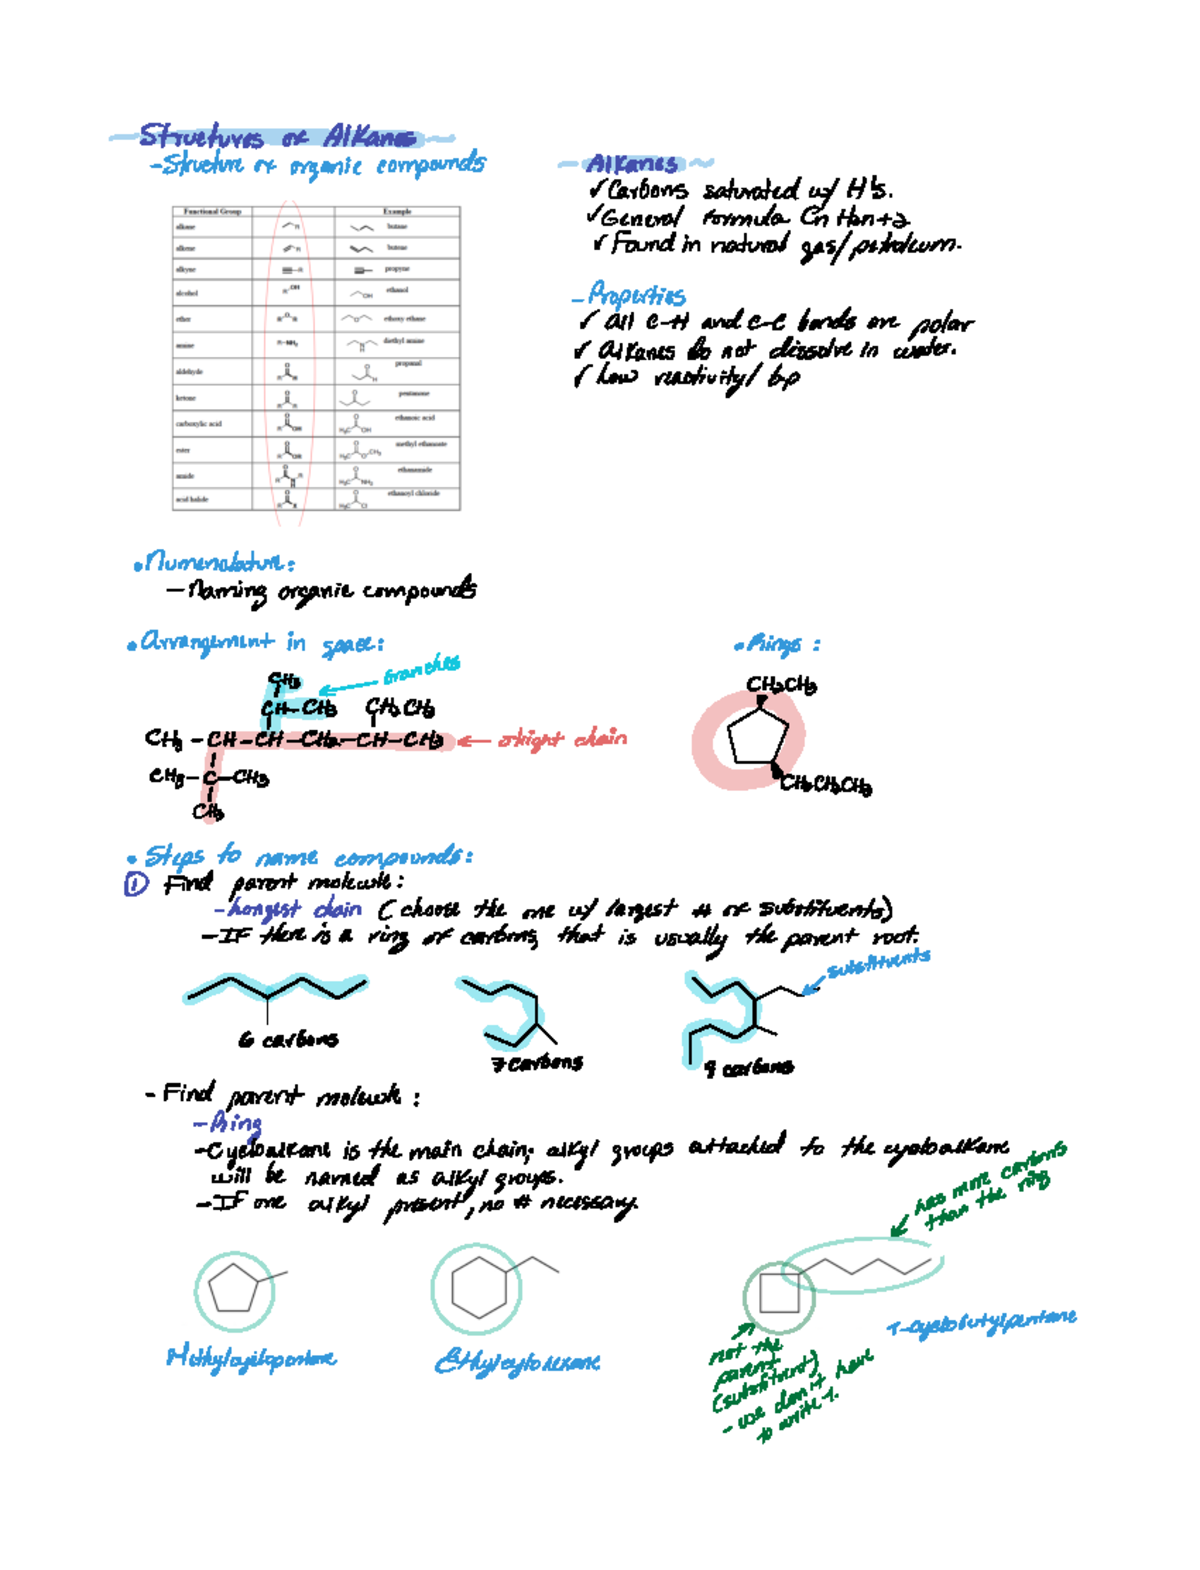 Structures of Alkanes
-Structure of organic compounds
Functional Group Example
alkane R butane
alkene R butene
alkyne R propyne
alcohol R OH OH ethanol
ether R O R O ethoxy ethane
amine R-NH₂ N H diethyl amine
aldehyde O R H O H propanal
ketone O R R O pentanone
carboxylic acid O R OH O H₃C OH ethanoic acid
ester O R OR O H₃C O CH₃ methyl ethanoate
amide O R N R H O H₃C NH₂ ethanamide
acid halide O R X O H₃C Cl ethanoyl chloride
- Alkanes
✓ Carbons saturated w/ H's.
✓ General formula Cn H2n+2
✓ Found in natural gas/petroleum.
- Properties
✓ All C-H and C-C bonds are polar
✓ Alkanes do not dissolve in water.
✓ Low reactivity/ bp
• Numenclature:
- Naming organic compounds
• Arrangement in space:
CH3
branches
CH-CH3 CH2CH3
CH3 - CH - CH - CH2 - CH - CH3
CH3 - C - CH3
CH3
• Rings:
CH2CH3
CH2CH2CH3
• Steps to name compounds:
① Find parent molecule:
- Longest chain (choose the one w/ largest # of substituents)
- IF there is a ring of carbons, that is usually the parent root.
substituents
6 carbons
7 carbons
9 carbons
- Find parent molecule:
- Ring
- Cycloalkane is the main chain; alkyl groups attached to the cycloalkane
will be named as alkyl groups.
- IF one alkyl present, no # necessary.
has more carbons
than the ring
Methylcyclopentane
Ethylcyclohexane
1-cyclobutylpentane
not the
parent
(substituent)
- we don't have
to write 1.